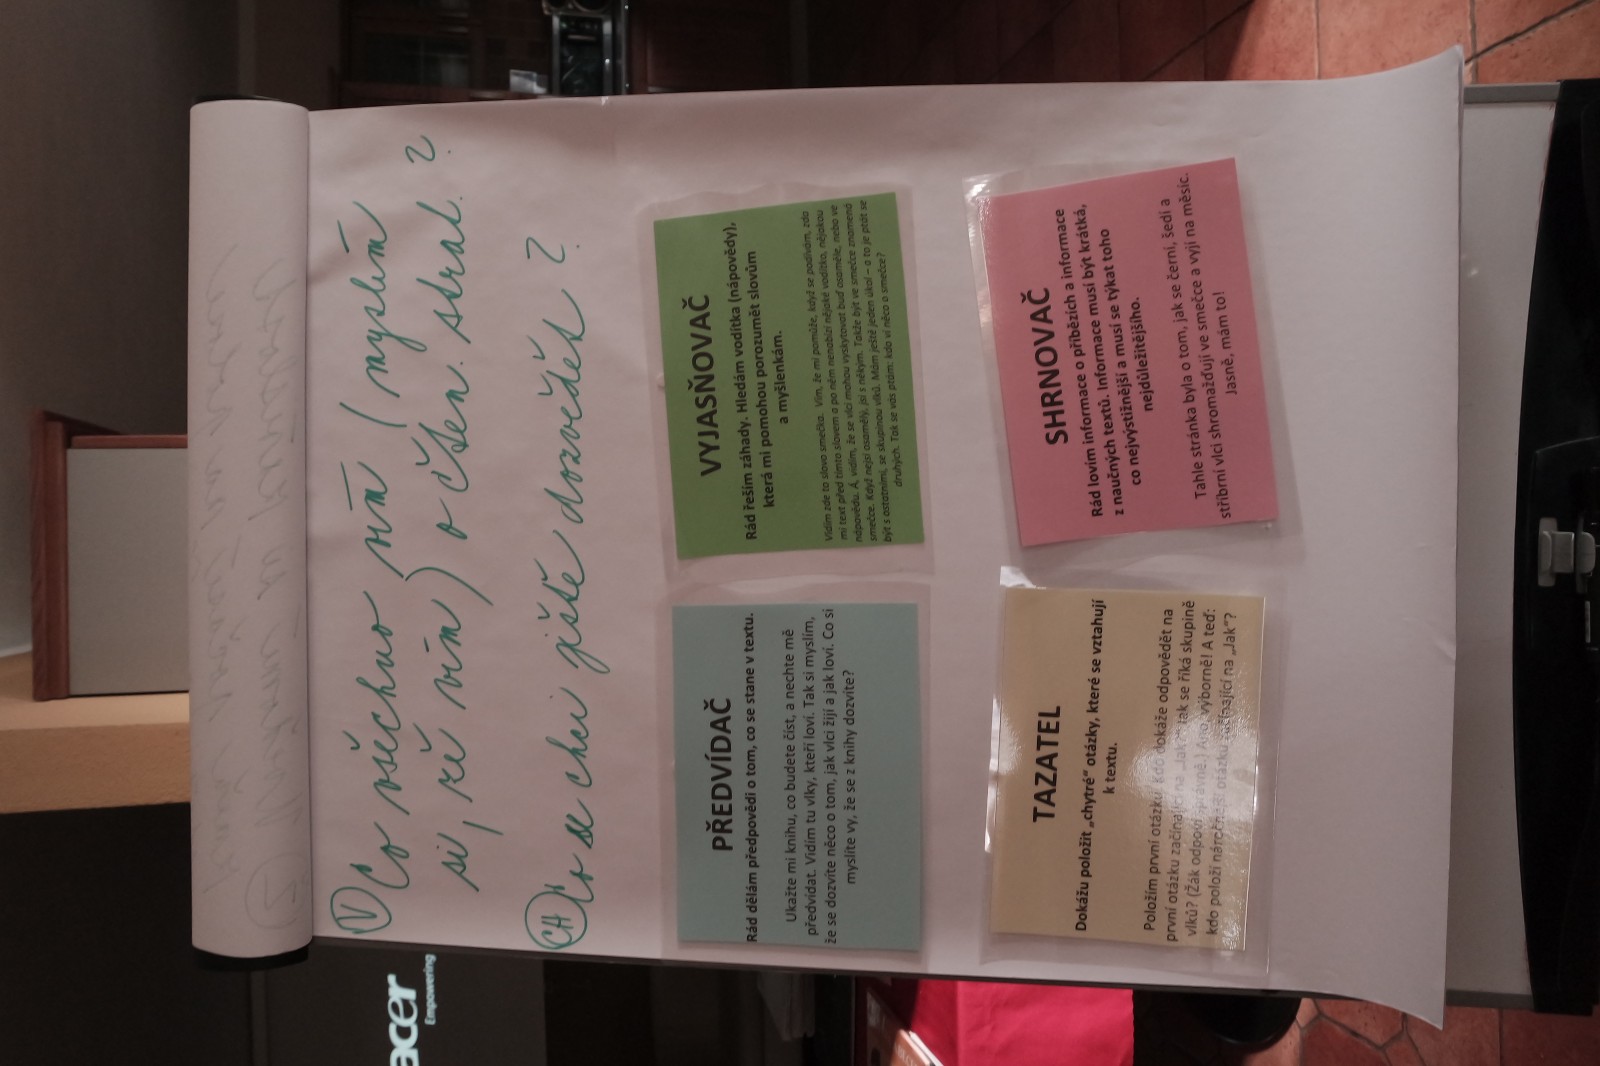 V Co všechno vím / myslím
si, že vím) o čten. strat. ?
CH Co se chci ještě dozvědět ?
PŘEDVÍDAČ
Rád dělám předpovědi o tom, co se stane v textu.
Ukažte mi knihu, co budete číst, a nechte mě
předvídat. Vidím tu vlky, kteří loví. Tak si myslím,
že se dozvíte něco o tom, jak vlci žijí a jak loví. Co si
myslíte vy, že se z knihy dozvíte?
VYJASŇOVAČ
Rád řeším záhady. Hledám vodítka (nápovědy),
která mi pomohou porozumět slovům
a myšlenkám.
Vidím zde to slovo smečka. Vím, že mi pomůže, když se podívám, zda
mi text před tímto slovem a po něm nenabízí nějaké vodítko, nějakou
nápovědu. A, vidím, že se vlci mohou vyskytovat buď osaměle, nebo ve
smečce. Když nejsi osamělý, jsi s někým. Takže být ve smečce znamená
být s ostatními, se skupinou vlků. Mám ještě jeden úkol – a to je ptát se
druhých. Tak se vás ptám: kdo ví něco o smečce?
TAZATEL
Dokážu položit „chytré“ otázky, které se vztahují
k textu.
Položím první otázku. Kdo dokáže odpovědět na
první otázku začínající na „Jak“: Jak se říká skupině
vlků? (Žák odpoví správně.) Ano, výborně! A teď:
kdo položí náročnější otázku začínající na „Jak“?
SHRNOVAČ
Rád lovím informace o příbězích a informace
z naučných textů. Informace musí být krátká,
co nejvýstižnější a musí se týkat toho
nejdůležitějšího.
Tahle stránka byla o tom, jak se černí, šedí a
stříbrní vlci shromažďují ve smečce a vyjí na měsíc.
Jasně, mám to!
acer
Empowering